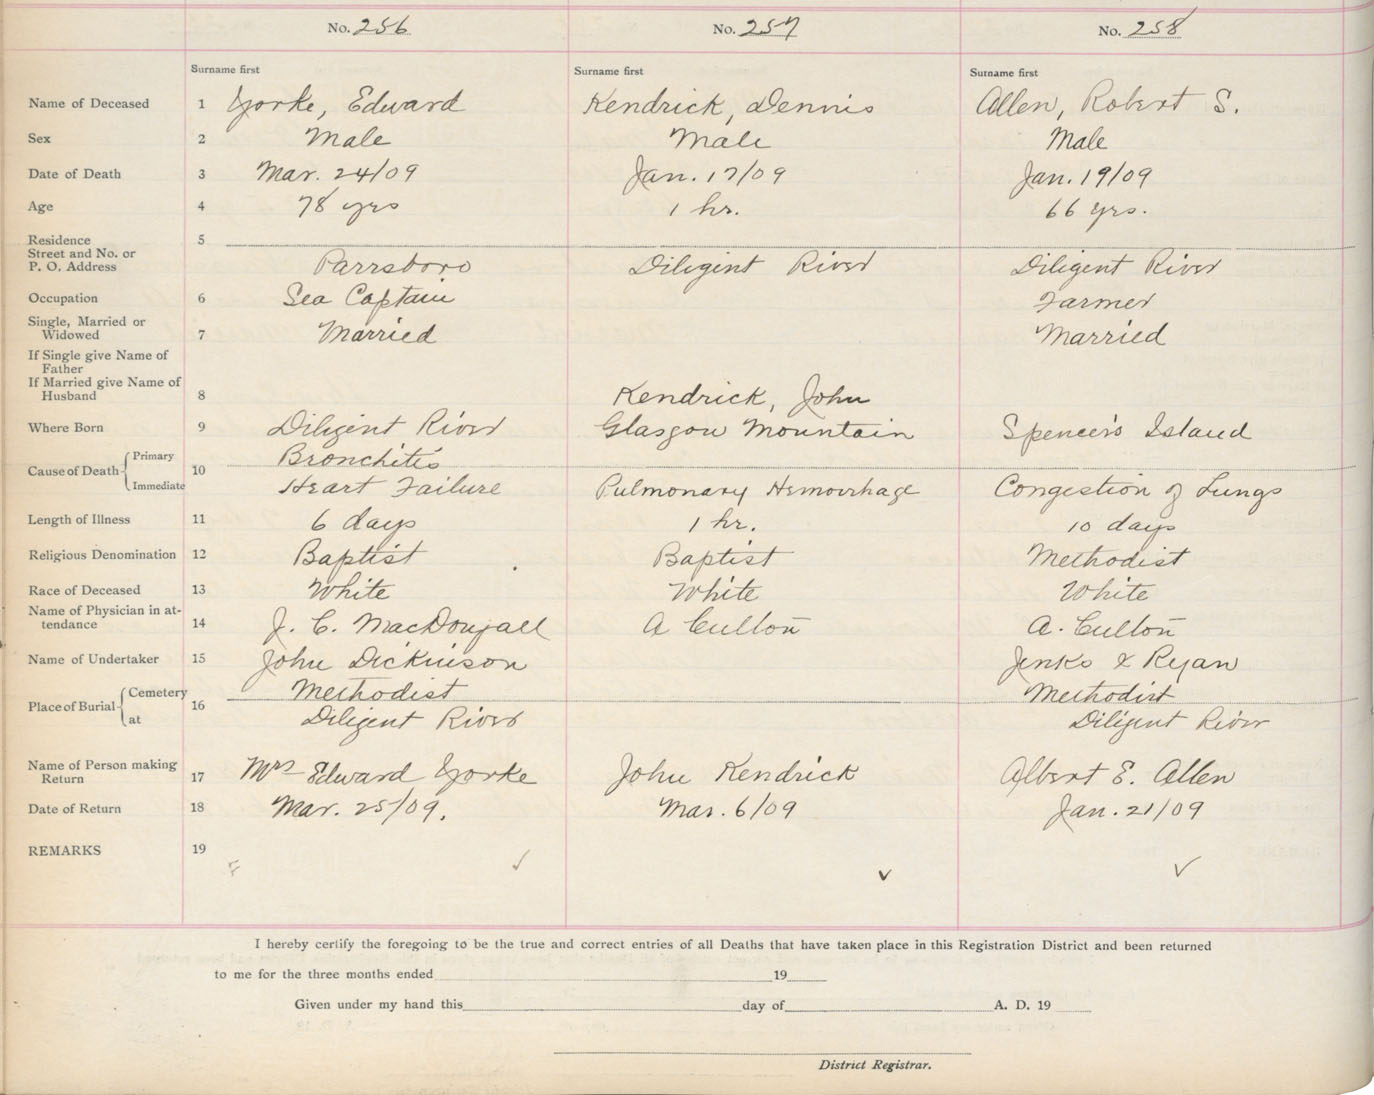 No. 256 No. 257 No. 258
Surname first Surname first Surname first
Name of Deceased 1 Yorke, Edward Kendrick, Dennis Allen, Robert S.
Sex 2 Male Male Male
Date of Death 3 Mar. 24/09 Jan. 17/09 Jan. 19/09
Age 4 78 yrs 1 hr. 66 yrs.
Residence 5
Street and No. or
P. O. Address Parrsboro Diligent River Diligent River
Occupation 6 Sea Captain Farmer
Single, Married or
Widowed 7 Married Married
If Single give Name of
Father
If Married give Name of
Husband 8 Kendrick, John
Where Born 9 Diligent River Glasgow Mountain Spencer's Island
Cause of Death 10 Primary Bronchitis
Immediate Heart Failure Pulmonary Hemorrhage Congestion of Lungs
Length of Illness 11 6 days 1 hr. 10 days
Religious Denomination 12 Baptist Baptist Methodist
Race of Deceased 13 White White White
Name of Physician in at-
tendance 14 J. C. MacDougall A Cullon A. Cullon
Name of Undertaker 15 John Dickinson Jenks & Ryan
Place of Burial 16 Cemetery Methodist Methodist
at Diligent River Diligent River
Name of Person making
Return 17 Mrs Edward Yorke John Kendrick Albert E. Allen
Date of Return 18 Mar. 25/09. Mar. 6/09 Jan. 21/09
REMARKS 19
F ✓ ✓ ✓
I hereby certify the foregoing to be the true and correct entries of all Deaths that have taken place in this Registration District and been returned
to me for the three months ended 19
Given under my hand this day of A. D. 19
District Registrar.